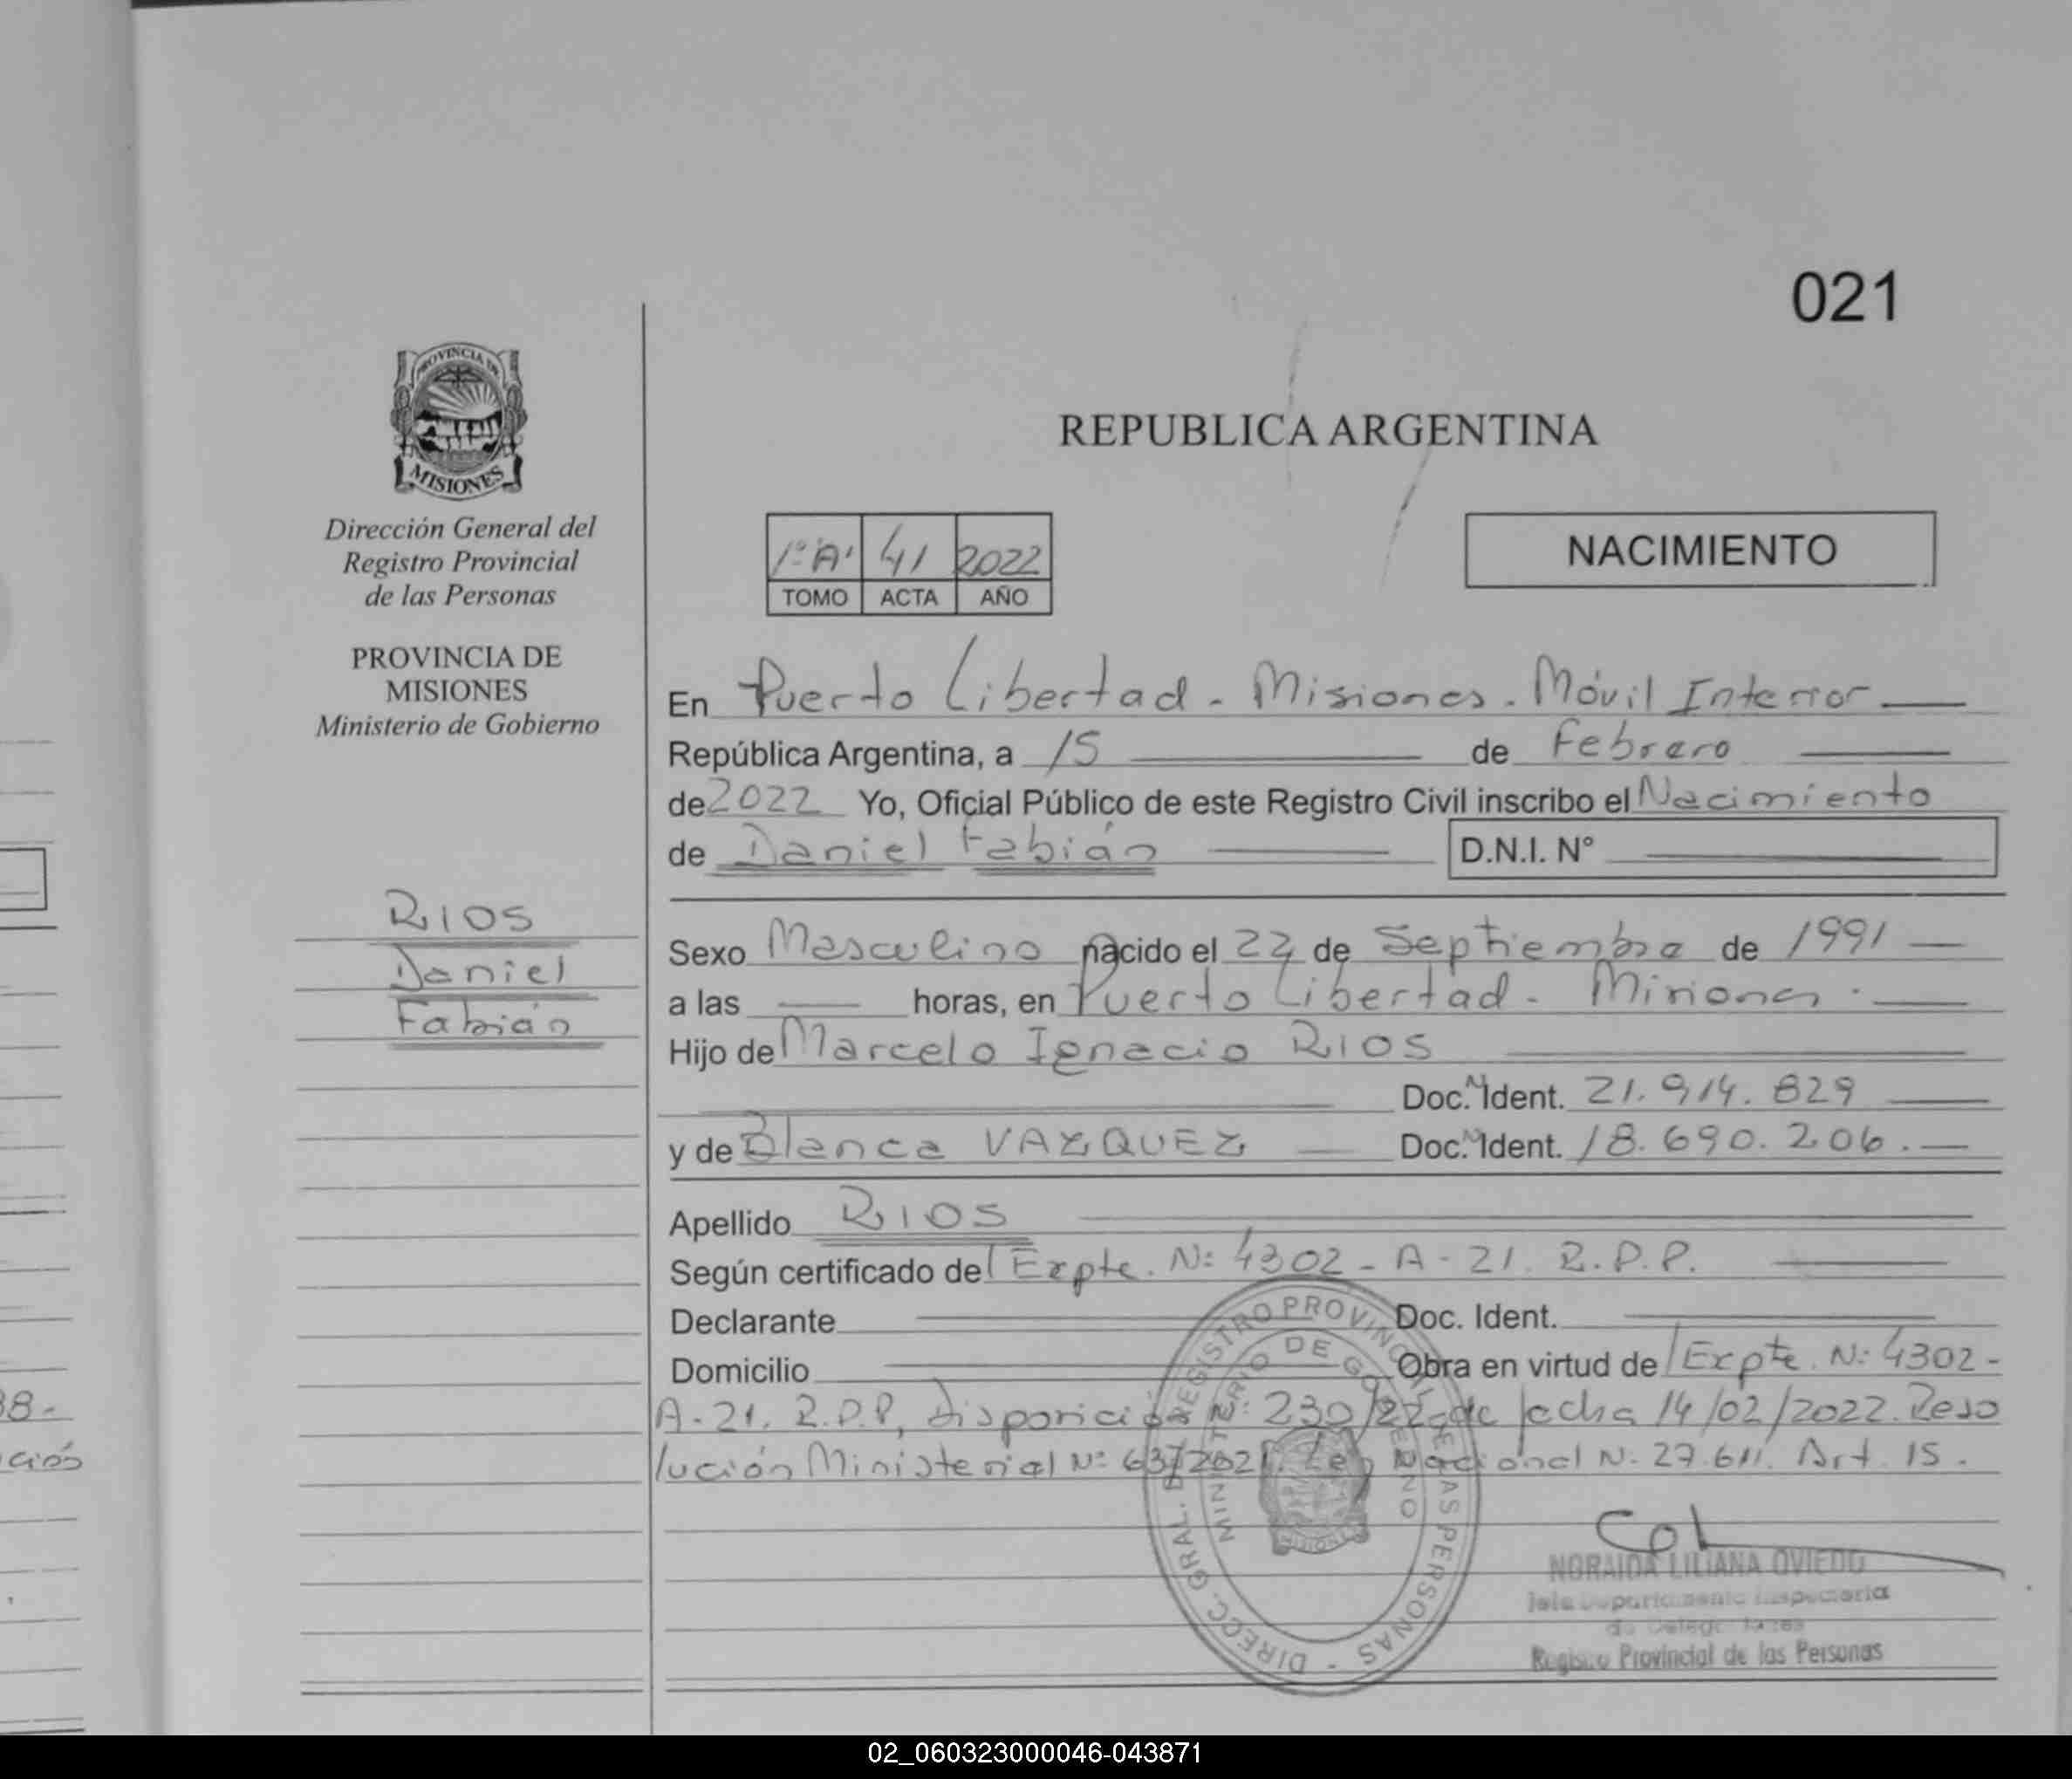 021
PROVINCIA DE
MISIONES
REPUBLICA ARGENTINA
Dirección General del
Registro Provincial
de las Personas
PROVINCIA DE
MISIONES
Ministerio de Gobierno
1º "A" 41 2022
TOMO ACTA AÑO
NACIMIENTO
En Puerto Libertad - Misiones - Móvil Interior
República Argentina, a 15 de Febrero
de 2022 Yo, Oficial Público de este Registro Civil inscribo el Nacimiento
de Daniel Fabián D.N.I. Nº
RIOS
Daniel
Fabián
Sexo Masculino nacido el 22 de Septiembre de 1991
a las horas, en Puerto Libertad - Misiones.
Hijo de Marcelo Ignacio RIOS
Doc. N. Ident. 21.914.829
y de Blanca VAZQUEZ Doc. N. Ident. 18.690.206.
Apellido RIOS
Según certificado del Expte. Nº 4302 - A - 21. R.P.P.
Declarante Doc. Ident.
Domicilio Obra en virtud del Expte. Nº 4302 -
A - 21. R.P.P, Disposición Nº 230/22 de fecha 14/02/2022. Reso
lución Ministerial Nº 637/2021. Ley Nacional Nº 27.611. Art. 15.
DIRECC. GRAL. DE REGISTRO PROVINCIAL DE LAS PERSONAS -
MINISTERIO DE GOBIERNO
NORAIDA LILIANA OVIEDO
Jefe Departamento Inspectoria
de Delegaciones
Registro Provincial de las Personas
38.-
ción
02_060323000046-043871